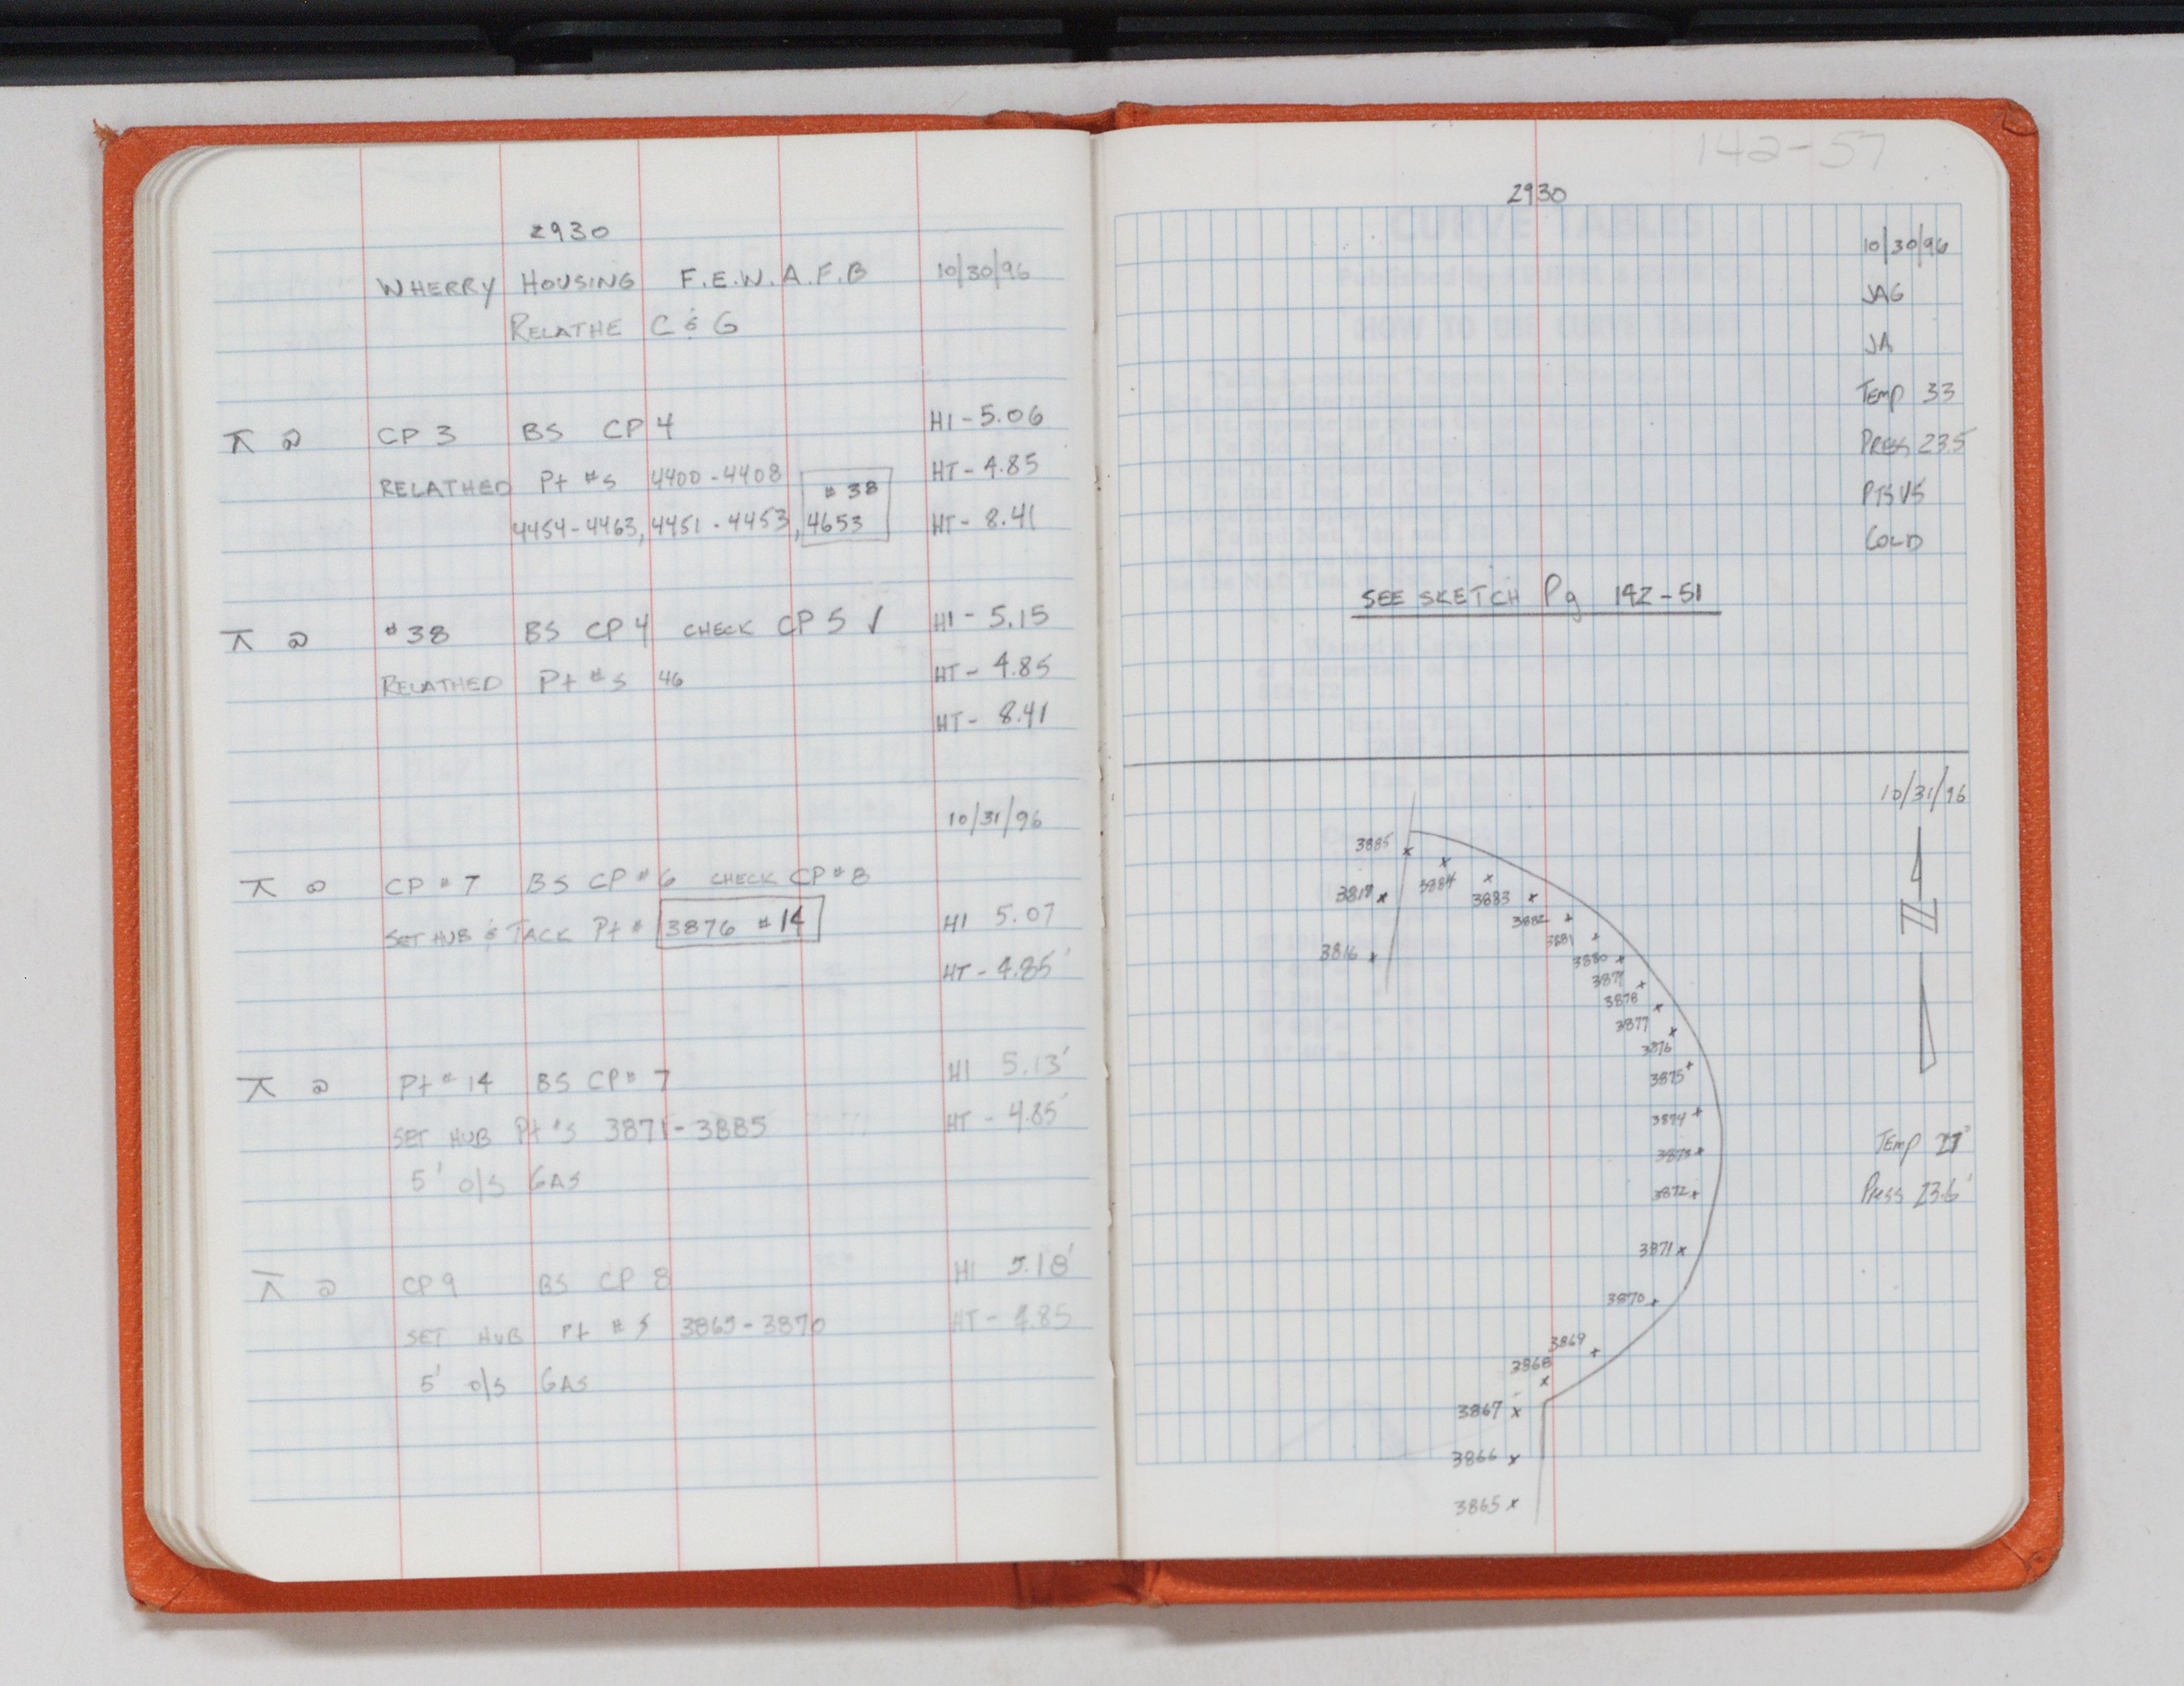 2930
WHERRY HOUSING F.E.W.A.F.B 10/30/96
RELATHE C & G
⊼ @ CP 3 BS CP 4 HI - 5.06
RELATHED Pt #s 4400 - 4408 HT - 4.85
# 38
4454 - 4463, 4451 - 4453, 4653 HT - 8.41
⊼ @ #38 BS CP 4 CHECK CP 5 ✓ HI - 5.15
RELATHED Pt #s 46 HT - 4.85
HT - 8.41
10/31/96
⊼ @ CP #7 BS CP #6 CHECK CP #8
SET HUB & TACK Pt # 3876 #14 HI 5.07
HT - 4.85'
⊼ @ Pt #14 BS CP# 7 HI 5.13'
SET HUB Pt #s 3871 - 3885 HT - 4.85'
5' o/s GAS
⊼ @ CP 9 BS CP 8 HI 5.18'
SET HUB Pt #s 3865 - 3870 HT - 4.85
5' o/s GAS
142-57
2930
10/30/96
JAG
JA
TEMP 33
PRESS 23.5
COLD
SEE SKETCH Pg 142-51
10/31/96
N
3885
3884
3883
3882
3881
3880
3879
3878
3877
3876
3875
3874
3873
3872
3871
3870
3869
3868
3867
3866
3865
3817
3816
TEMP 27°
PRESS 23.6'
CURVE TABLES
HOW TO USE CURVE TABLES